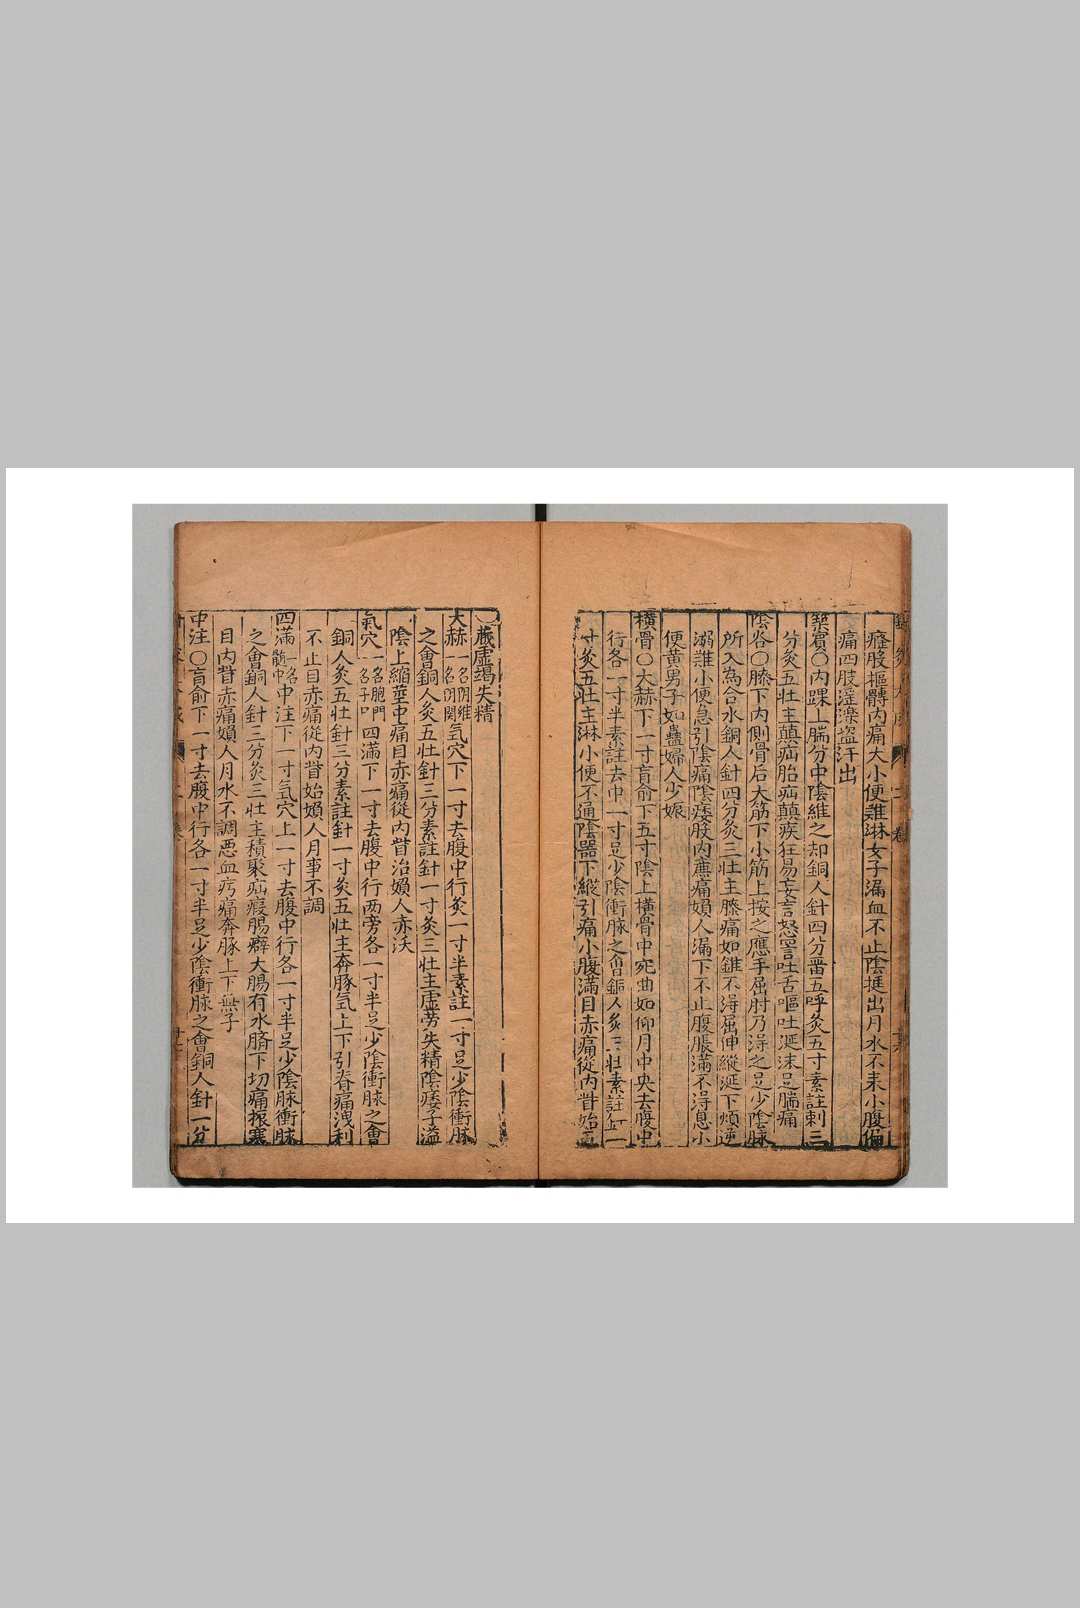 痿股樞髀內痛大小便難淋女子漏血不止陰挺出月水不来小腹偏
痛四肢淫濼盗汗出
築賔〇內踝上腨分中陰維之却銅人針四分留五呼灸五寸素註刺三
分灸五壮主癲疝胎疝癲疾狂易妄言怒詈吐舌嘔吐涎沫足腨痛
陰谷〇膝下內側骨后大筋下小筋上按之應手屈肘乃淂之足少陰脉
所入為合水銅人針四分灸三壮主膝痛如錐不淂屈伸縱涎下煩逆
溺難小便急引陰痛陰痿股內廉痛婦人漏下不止腹脹滿不淂息小
便黄男子如蠱婦人少娠
橫骨〇大赫下一寸肓俞下五寸陰上橫骨中宛曲如仰月中央去腹中
行各一寸半素註去中一寸足少陰衝脉之會銅人灸三壮素註針一
寸灸五壮主淋小便不通陰器下縱引痛小腹滿目赤痛從內眥始五
藏虛竭失精
大赫一名陰維一名陰関氣穴下一寸去腹中行灸一寸半素註一寸足少陰衝脉
之會銅人灸五壮針三分素註針一寸灸三壮主虛劳失精陰痿子溢
陰上縮莖中痛目赤痛從內眥治婦人赤沃
氣穴一名胞門一名子户四滿下一寸去腹中行两旁各一寸半足少陰衝脉之會
銅人灸五壮針三分素註針一寸灸五壮主奔豚氣上下引脊痛洩利
不止目赤痛從內眥始婦人月事不調
四滿一名髓中中注下一寸氣穴上一寸去腹中行各一寸半足少陰脉衝脉
之會銅人針三分灸三壮主積聚疝瘕腸癖大腸有水臍下切痛振寒
目內眥赤痛婦人月水不調悪血㽲痛奔豚上下無子
中注〇肓俞下一寸去腹中行各一寸半足少陰衝脉之會銅人針一分